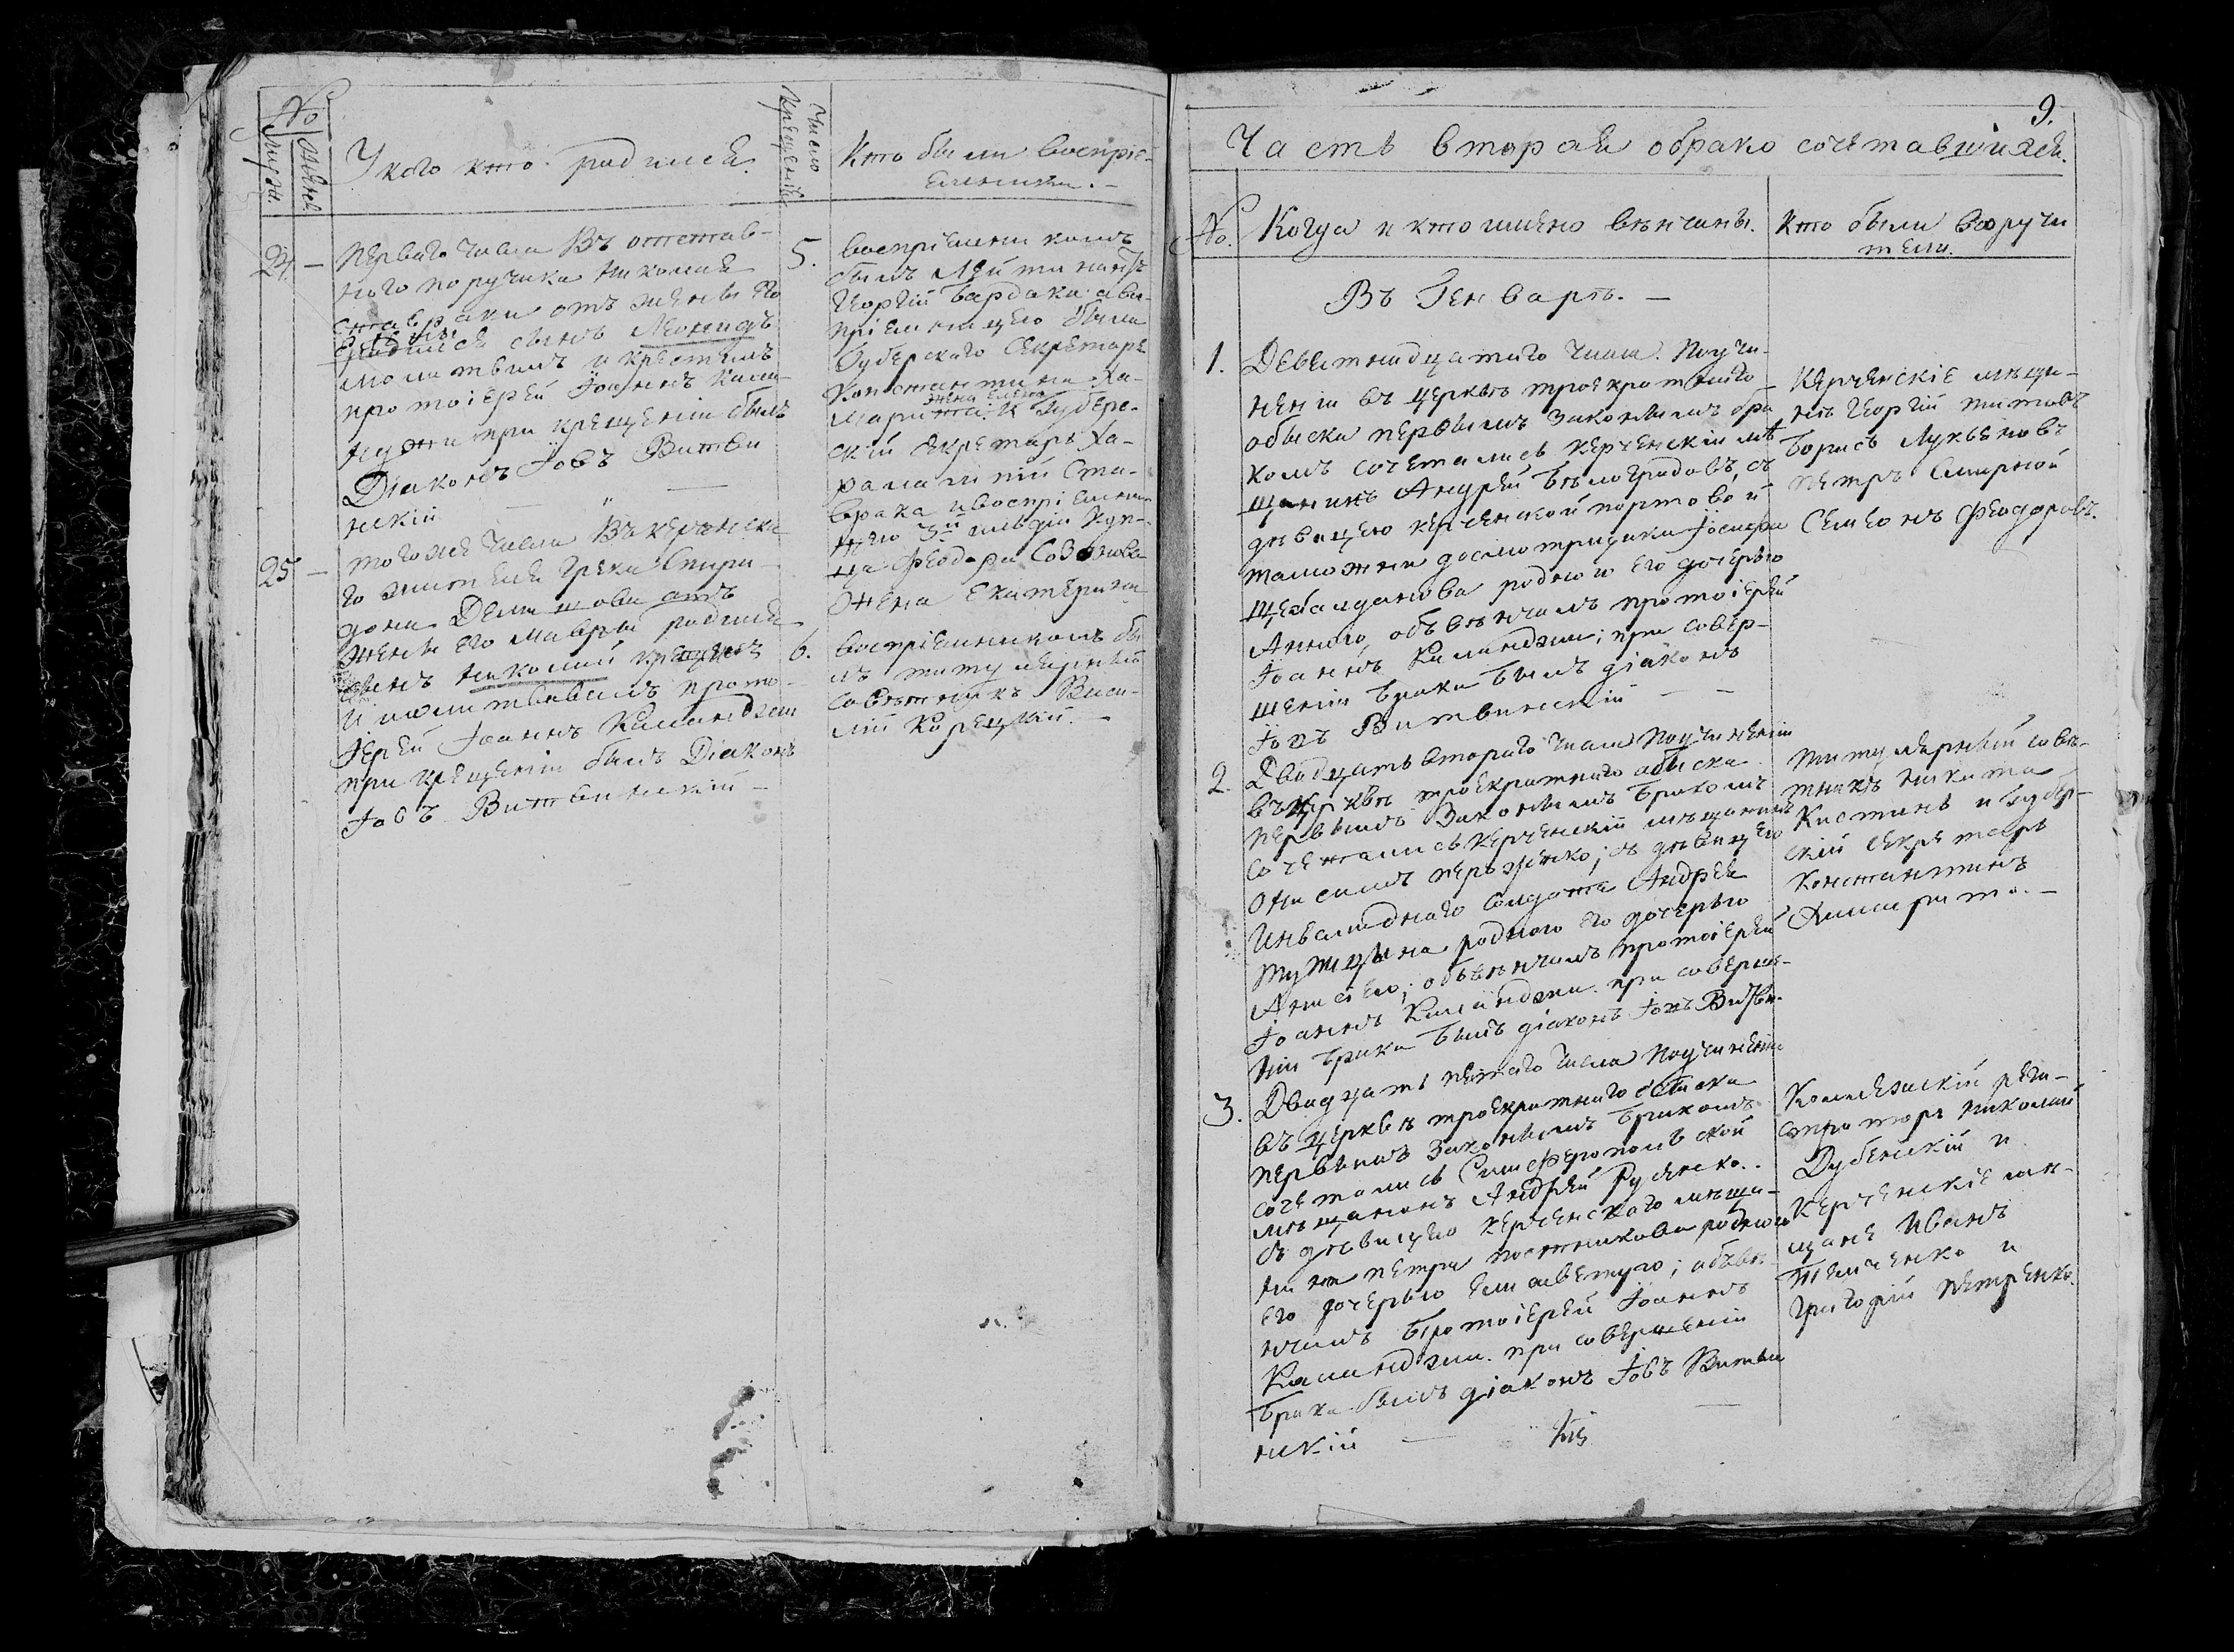 No
Муж.
Женс.
У кого кто родился.
Число крещенія
Кто были воспріе-
емники.-
24 -
Перваго числа Въ отстав-
ного поручика Николая
Ставраки отъ жены его
родился сынъ Леонидъ
молитвилъ и крестилъ
протоіерей Іоаннъ Кали-
при крещеніи былъ
Діаконъ Іовъ Витви
нскій
5.
воспріемникомъ
былъ Лейтинантъ
Георгій Бардаки а во-
пріемницею была
Губерского Секретаря
Константина
жена Елена
и Губерн-
скій секретарь Ха-
ралампій Ста-
врака и воспріемни-
цею 3й гильдіи куп-
ца Феодора Созонова
жена Екатерина
25 -
того же числа Въ керченска
го жителя Грека Спири-
дона отъ
жены его Мавры родился
сынъ Николай крещенъ
и молитвилъ прото-
іерей Іоаннъ Калинджи
при крещеніи былъ Діаконъ
Іовъ Витвинскій -
6.
воспріемникомъ бы
лъ титулярный
Совѣтникъ Васи-
лій Корецкій. -
9.
Часть вторая обрако сочетавшихся.
No.
Когда и кто имено вѣнчаны.
Кто были поручи
тели.
Въ Генварѣ. -
1.
Девятнадцатаго числа. По учи-
неніи въ церквѣ троекратнаго
обыска первымъ законнымъ бра
комъ сочетались керченскій мѣ
щанинъ Андрей Бѣлоградовъ, съ
дѣвицею керченской портовой
таможни досмотрщика Іосифа
родною его дочерью
Анною, объвѣнчалъ протоіерей
Іоаннъ Калинджи; при совер-
шеніи брака былъ діаконъ
Іовъ Витвинскій - -
Керченскіе мѣща-
нѣ Георгій Титовъ
Борисъ Лукьяновъ
Петръ Смирной
Семеонъ Феодоровъ.
2.
Двадцать втораго числа По учиненіи
въ церквѣ троекратнаго обыска
первымъ Законнымъ бракомъ
сочетались керченскій мѣщанинъ
Онисимъ съ дѣвицею
Инвалиднаго Солдата Андрея
родною его дочерью
объвѣнчалъ протоіерей
Іоаннъ Калинджи. при соверше-
ніи брака былъ діаконъ Іовъ Витви-
Титулярный совѣ-
тникъ Никита
Костинъ и Губер-
скій секретарь
Константинъ
3.
Двадцать пятаго числа По учиненіи
въ церквѣ троекратнаго обыска
первымъ Законнымъ бракомъ
сочетались Симферопольской
мѣщанинъ Андрей Руденко.
съ дѣвицею керченскаго мѣща-
нина Петра Постникова родною
его дочерью Елисаветую; объвѣ-
нчалъ протоіерей Іоаннъ
Калинджи. при совершеніи
брака былъ діаконъ Іовъ Витви
нскій -
Коллежскій реги-
страторъ Николай
Дубенскій и
Керченскіе мѣ-
щане Иванъ
и
Григорій Петренко.